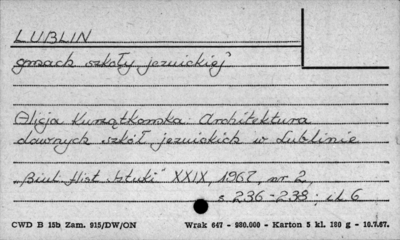 LUBLIN
gmach szkoły jezuickiej
Alicja Kurzątkowska: Architektura
dawnych szkół jezuickich w Lublinie
"Biul. Hist. Sztuki" XXIX, 1967, nr 2,
s. 236-238; il. 6
CWD B 15b Zam. 915/DW/ON Wrak 647 - 980.000 - Karton 5 kl. 180 g - 10.7.67.